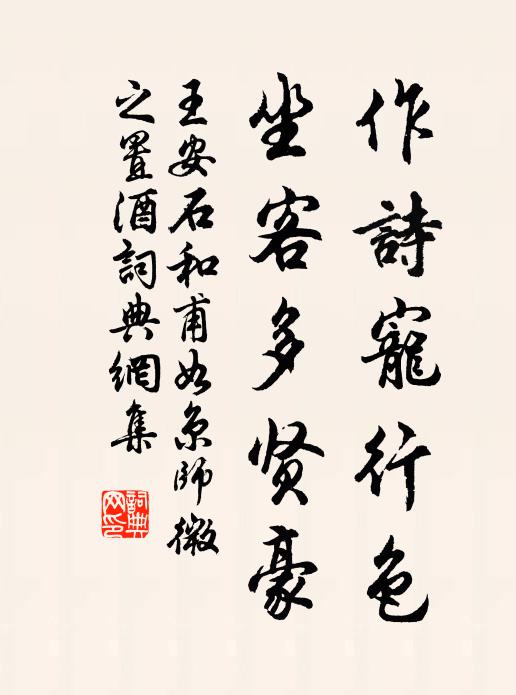 作詩寵行色
坐客多贤豪
王安石和甫如京師微
之置酒詞典網集
詞典
网印